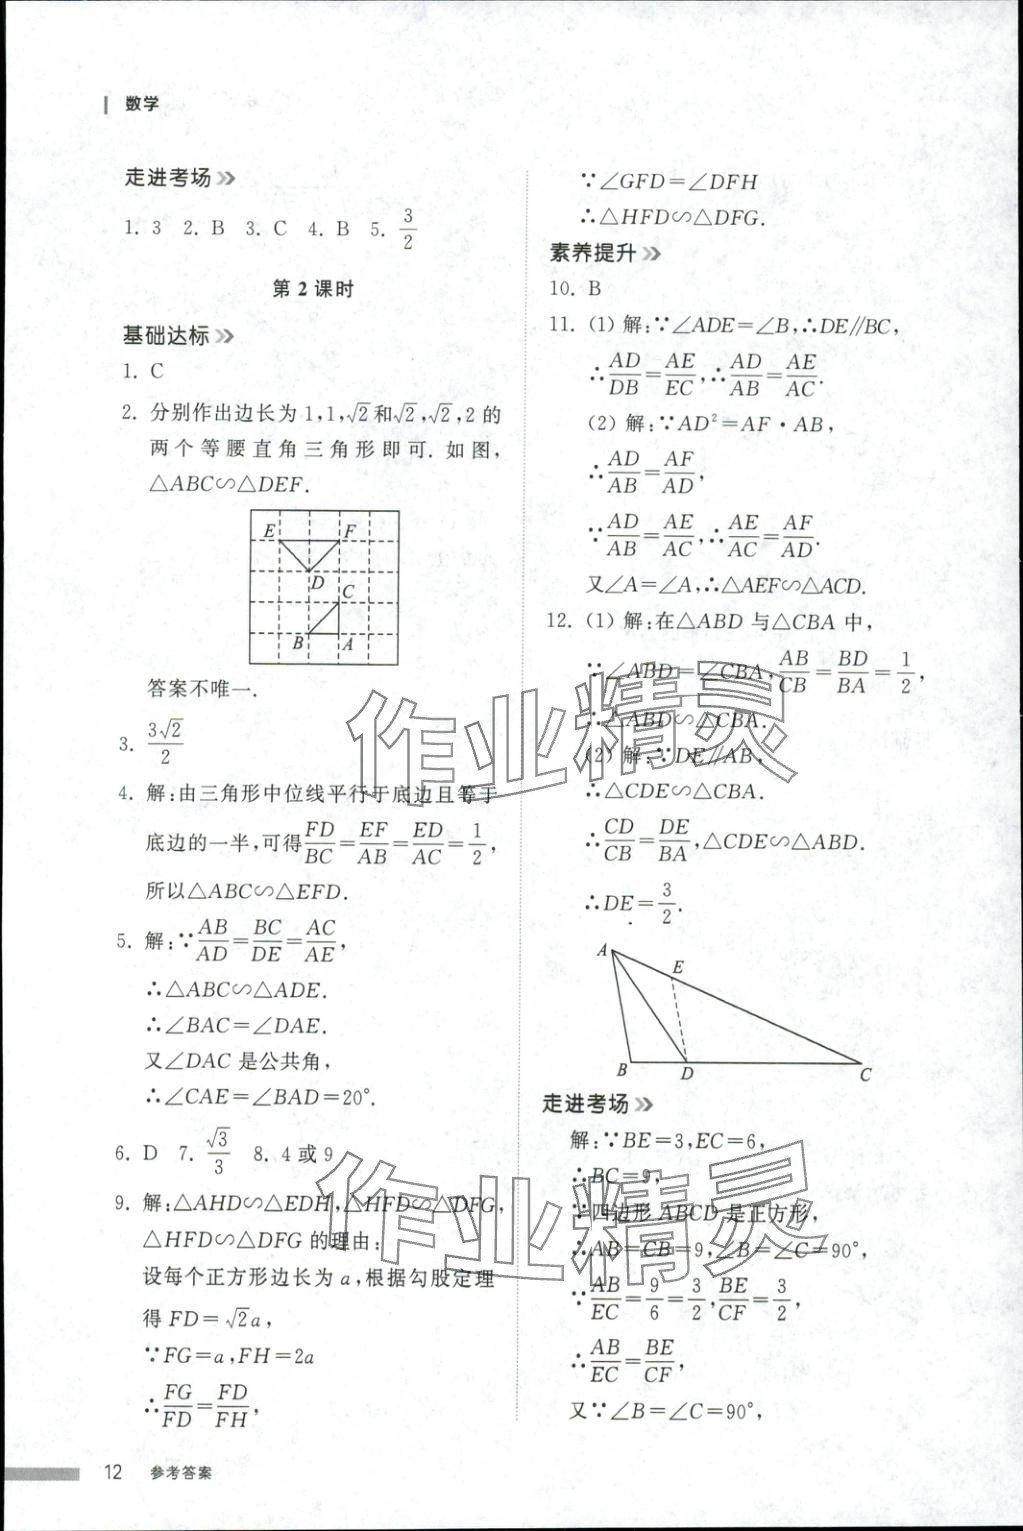 数学
走进考场
1. 3 2. B 3. C 4. B 5. 3/2
第 2 课时
基础达标
1. C
2. 分别作出边长为 1,1,√2和√2,√2,2 的
两个等腰直角三角形即可. 如图,
△ABC∽△DEF.
E F
D
C
B A
答案不唯一.
3. 3√2/2
4. 解:由三角形中位线平行于底边且等于
底边的一半,可得FD/BC=EF/AB=ED/AC=1/2,
所以△ABC∽△EFD.
5. 解:∵AB/AD=BC/DE=AC/AE,
∴△ABC∽△ADE.
∴∠BAC=∠DAE.
又∠DAC 是公共角,
∴∠CAE=∠BAD=20°.
6. D 7. √3/3 8. 4 或 9
9. 解:△AHD∽△EDH,△HFD∽△DFG,
△HFD∽△DFG 的理由:
设每个正方形边长为 a,根据勾股定理
得 FD=√2a,
∵FG=a,FH=2a
∴FG/FD=FD/FH,
∵∠GFD=∠DFH
∴△HFD∽△DFG.
素养提升
10. B
11. (1) 解:∵∠ADE=∠B,∴DE∥BC,
∴AD/DB=AE/EC,∴AD/AB=AE/AC.
(2) 解:∵AD²=AF·AB,
∴AD/AB=AF/AD,
∵AD/AB=AE/AC,∴AE/AC=AF/AD.
又∠A=∠A,∴△AEF∽△ACD.
12. (1) 解:在△ABD 与△CBA 中,
∵∠ABD=∠CBA,AB/CB=BD/BA=1/2,
∴△ABD∽△CBA.
(2) 解:∵DE∥AB,
∴△CDE∽△CBA.
∴CD/CB=DE/BA,△CDE∽△ABD.
∴DE=3/2.
A
E
B D C
走进考场
解:∵BE=3,EC=6,
∴BC=9,
∵四边形 ABCD 是正方形,
∴AB=CB=9,∠B=∠C=90°,
∵AB/EC=9/6=3/2,BE/CF=3/2,
∴AB/EC=BE/CF,
又∵∠B=∠C=90°,
12 参考答案
作业精灵
作业精灵